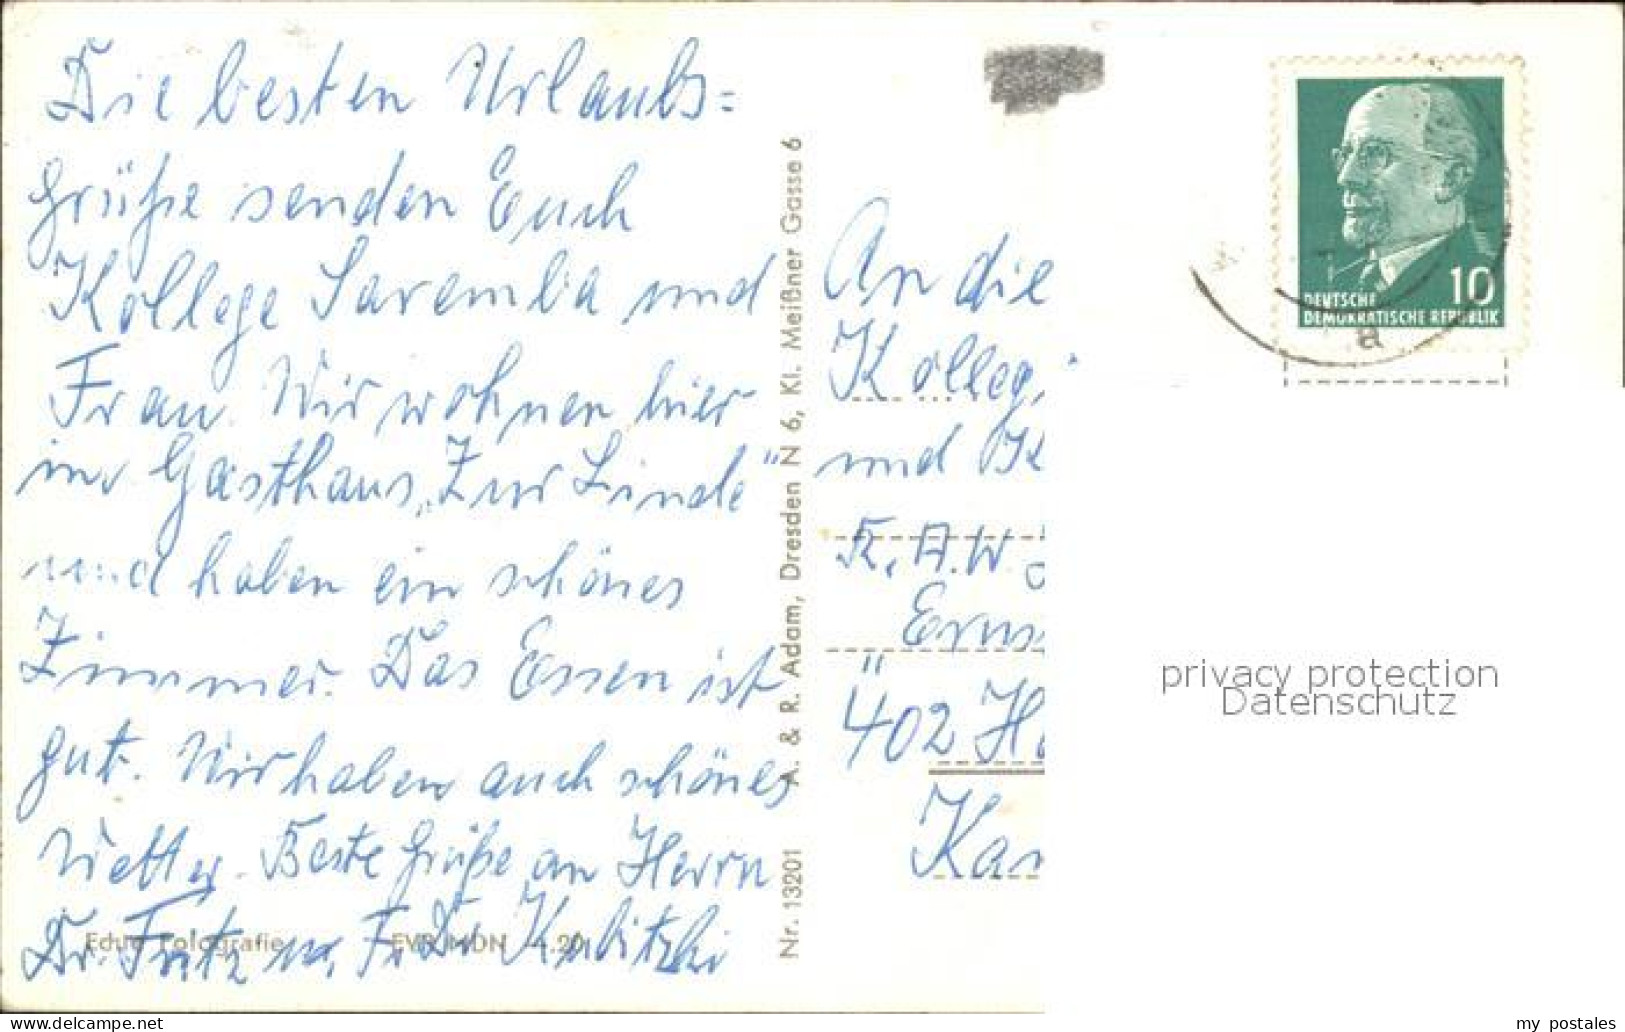 Die besten Urlaubs=
grüße senden Euch
Kollege Saremba und
Frau. Wir wohnen hier
im Gasthaus „Zur Linde"
und haben ein schönes
Zimmer. Das Essen ist
gut. Wir haben auch schönes
Wetter. Beste Grüße an Herrn
Dr. Fritz u. Fr. Dr. Kubitzki
Echte Fotografie EVP MDN -.20
Nr. 13201 A. & R. Adam, Dresden N 6, Kl. Meißner Gasse 6
DEUTSCHE 10
DEMOKRATISCHE REPUBLIK
a
An die
Kolleg
und K
R.A.W.
Erns
402 H
Kan
privacy protection
Datenschutz
my postales
https://www.delcampe.net